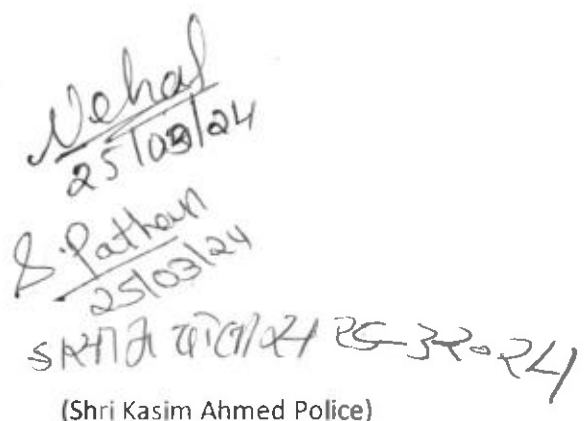 Nehal
25/03/24
S. Pathan
25/03/24
(Shri Kasim Ahmed Police)